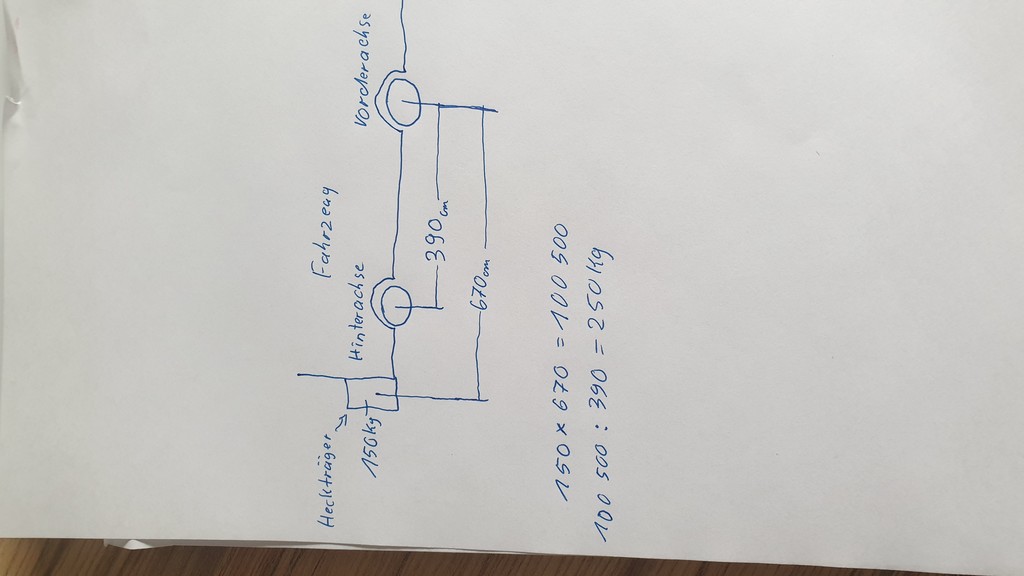 Heckträger
150Kg
Hinterachse
Fahrzeug
Vorderachse
390cm
670cm
150 x 670 = 100 500
100 500 : 390 = 250Kg